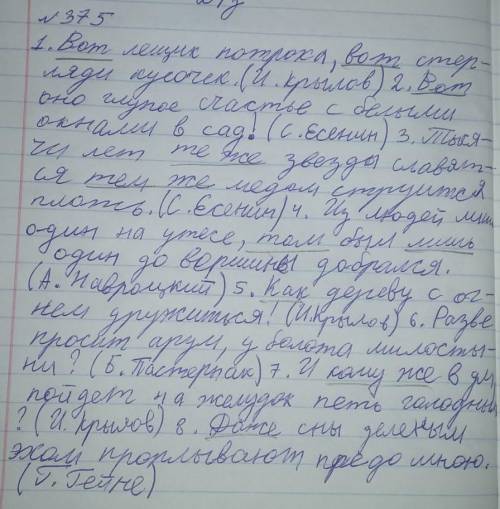 №375
1. Вот лещик потроха, вот стер-
ляди кусочек. (И. Крылов) 2. Вот
оно глупое счастье с белыми
окнами в сад! (С. Есенин) 3. Тыся-
чи лет те же звезды славят-
ся тем же медом струится
плоть. (С. Есенин) 4. Из людей лишь
один на утесе, там был лишь
один до вершины добрался.
(А. Навроцкий) 5. Как дереву с ог-
нем дружиться! (И. Крылов) 6. Разве
просит арум, у болота милосты-
ни? (Б. Пастернак) 7. И кому же в ум
пойдет на желудок петь голодный
? (И. Крылов) 8. Даже сны зеленым
эхом проплывают предо мною.
(Г. Гейне)